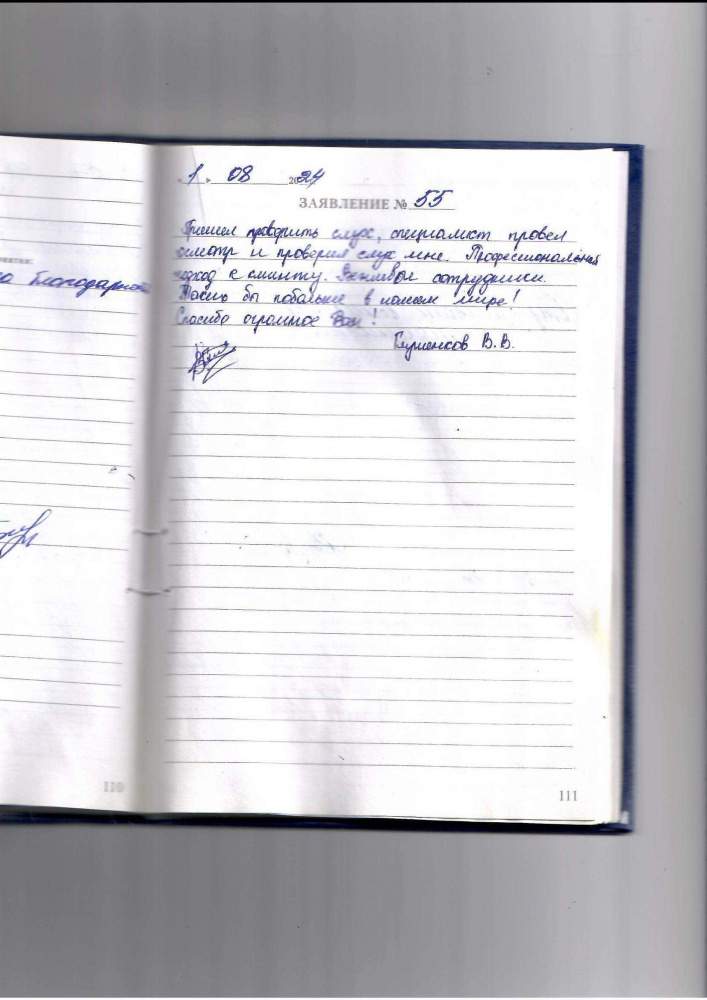 «1» 08 2024
ЗАЯВЛЕНИЕ № 55
Пришел проверить слух, специалист провел
осмотр и проверил слух мне. Профессиональный
подход к клиенту. Вежливые сотрудники.
Таких бы побольше в нашем мире!
Спасибо огромное Вам!
В.В.
благодарност
110
111